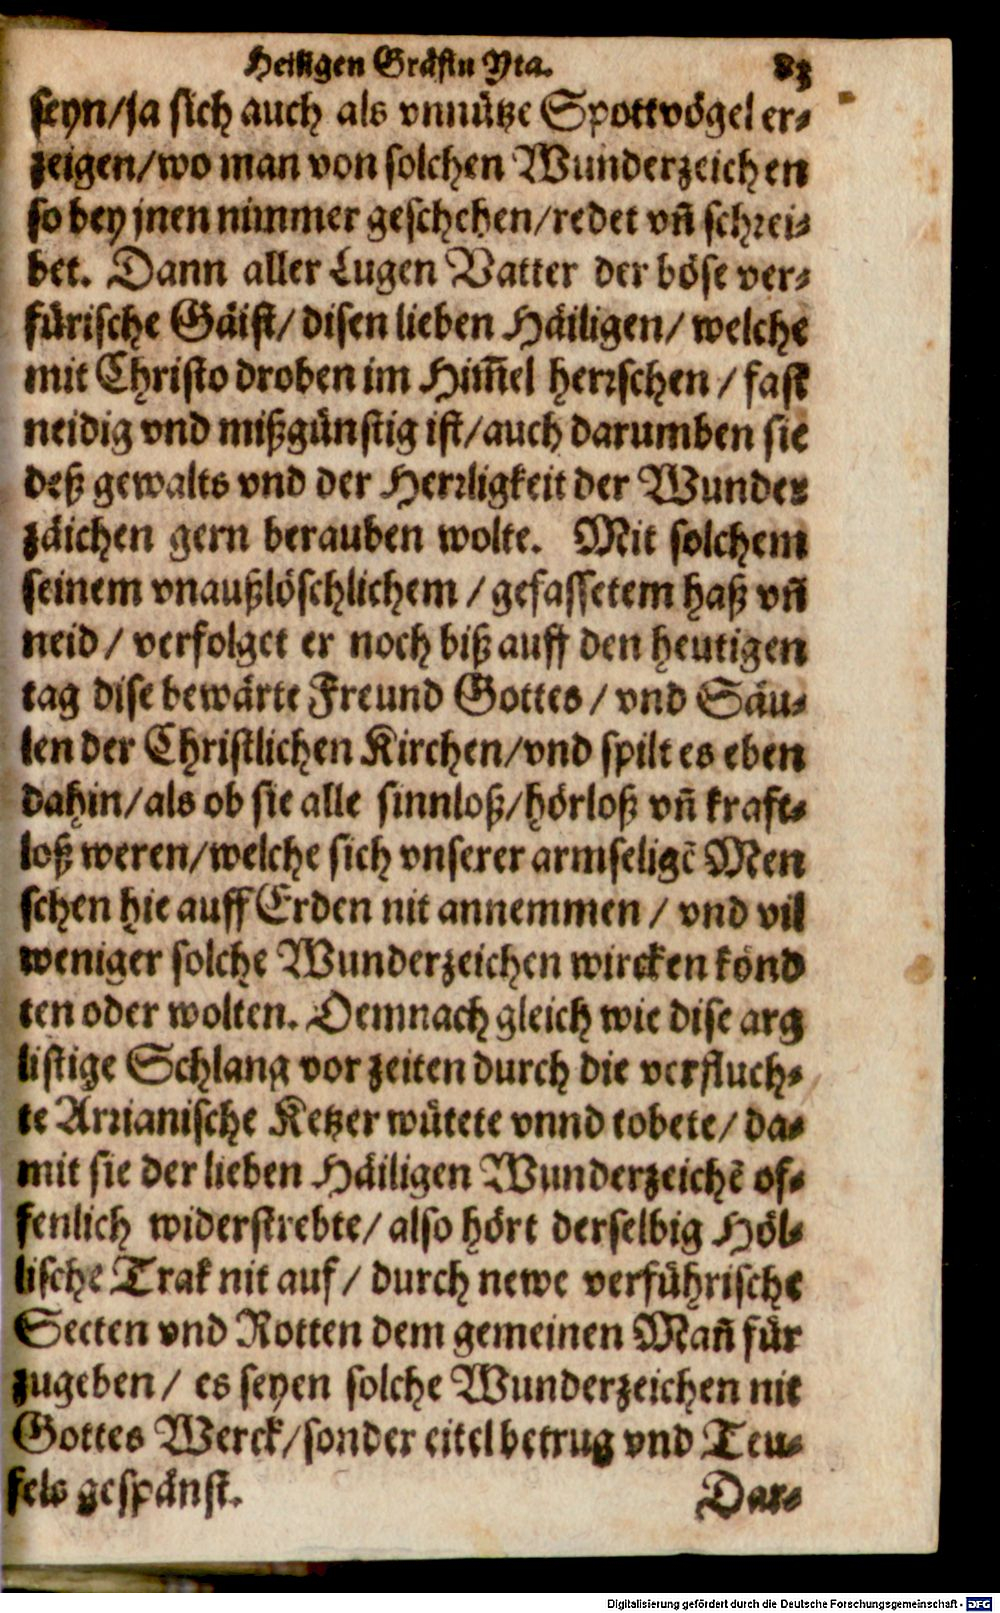 Heiligen Gräfin Yta. 83
seyn/ja sich auch als vnnütze Spottvögel er-
zeigen/wo man von solchen Wunderzeichen
so bey jnen nimmer geschehen/redet vñ schrei-
bet. Dann aller Lugen Vatter der böse ver-
fürische Gäist/ disen lieben Häiligen/ welche
mit Christo droben im Him̃el herrschen / fast
neidig vnd mißgünstig ist/auch darumben sie
deß gewalts vnd der Herrligkeit der Wunder
zäichen gern berauben wolte. Mit solchem
seinem vnaußlöschlichem / gefassetem haß vñ
neid / verfolget er noch biß auff den heutigen
tag dise bewärte Freund Gottes / vnd Säu-
len der Christlichen Kirchen/vnd spilt es eben
dahin/als ob sie alle sinnloß/hörloß vñ kraft-
loß weren/welche sich vnserer armseligẽ Men
schen hie auff Erden nit annemmen / vnd vil
weniger solche Wunderzeichen wircken könd
ten oder wolten. Demnach gleich wie dise arg
listige Schlang vor zeiten durch die verfluch-
te Arrianische Ketzer wütete vnnd tobete/ da-
mit sie der lieben Häiligen Wunderzeichẽ of-
fenlich widerstrebte/ also hört derselbig Höl-
lische Trak nit auf / durch newe verführische
Secten vnd Rotten dem gemeinen Mañ für
zugeben / es seyen solche Wunderzeichen nit
Gottes Werck/sonder eitel betrug vnd Teu-
fels gespänst.
Dar-
Digitalisierung gefördert durch die Deutsche Forschungsgemeinschaft - DFG